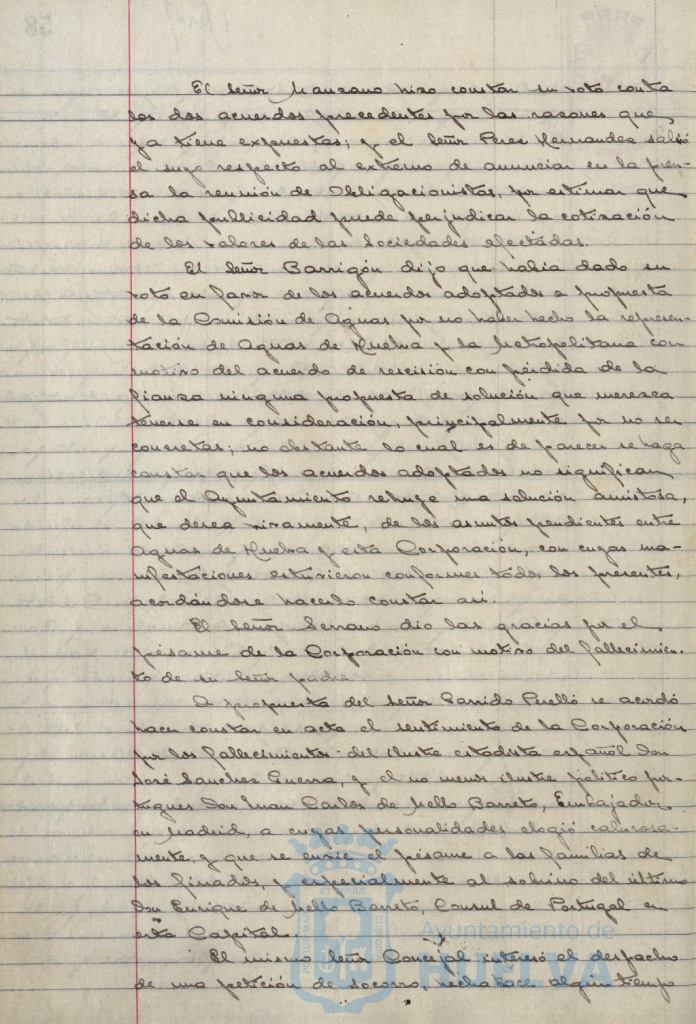 El Señor Manzano hizo constar su voto contra
los dos acuerdos precedentes por las razones que
ya tiene expuestas; y el Señor Perez Hernandez salvó
el suyo respecto al extremo de anunciar en la pren-
sa la reunión de Obligacionistas, por estimar que
dicha publicidad puede perjudicar la cotización
de los valores de las Sociedades afectadas.
El Señor Barrigón dijo que había dado su
voto en favor de los acuerdos adoptados a propuesta
de la Comisión de Aguas por no haber hecho la represen-
tación de Aguas de Huelva y la Metropolitana con
motivo del acuerdo de rescisión con pérdida de la
fianza ninguna propuesta de solución que merezca
tenerse en consideración, principalmente por no ser
concretas; no obstante lo cual es de parecer se haga
constar que los acuerdos adoptados no significan
que el Ayuntamiento rehuye una solución amistosa,
que desea vivamente, de los asuntos pendientes entre
Aguas de Huelva y esta Corporación, con cuyas ma-
nifestaciones estuvieron conformes todos los presentes,
acordándose hacerlo constar así.
El Señor Serrano dio las gracias por el
pésame de la Corporación con motivo del fallecimien-
to de su Señor padre
A propuesta del Señor Garrido Perelló se acordó
hacer constar en acta el sentimiento de la Corporación
por los fallecimientos del ilustre estadista español Don
José Sanchez Guerra, y el no menos ilustre político por-
tugues Don Juan Carlos de Mello Barreto, Embajador
en Madrid, a cuyas personalidades elogió calurosa-
mente, y que se envie el pésame a las familias de
los finados, y especialmente al sobrino del último
Don Enrique de Mello Barreto, Consul de Portugal en
esta Capital.
El mismo Señor Concejal interesó el despacho
de una petición de socorro, hecha hace algún tiempo
Ayuntamiento de
HUELVA